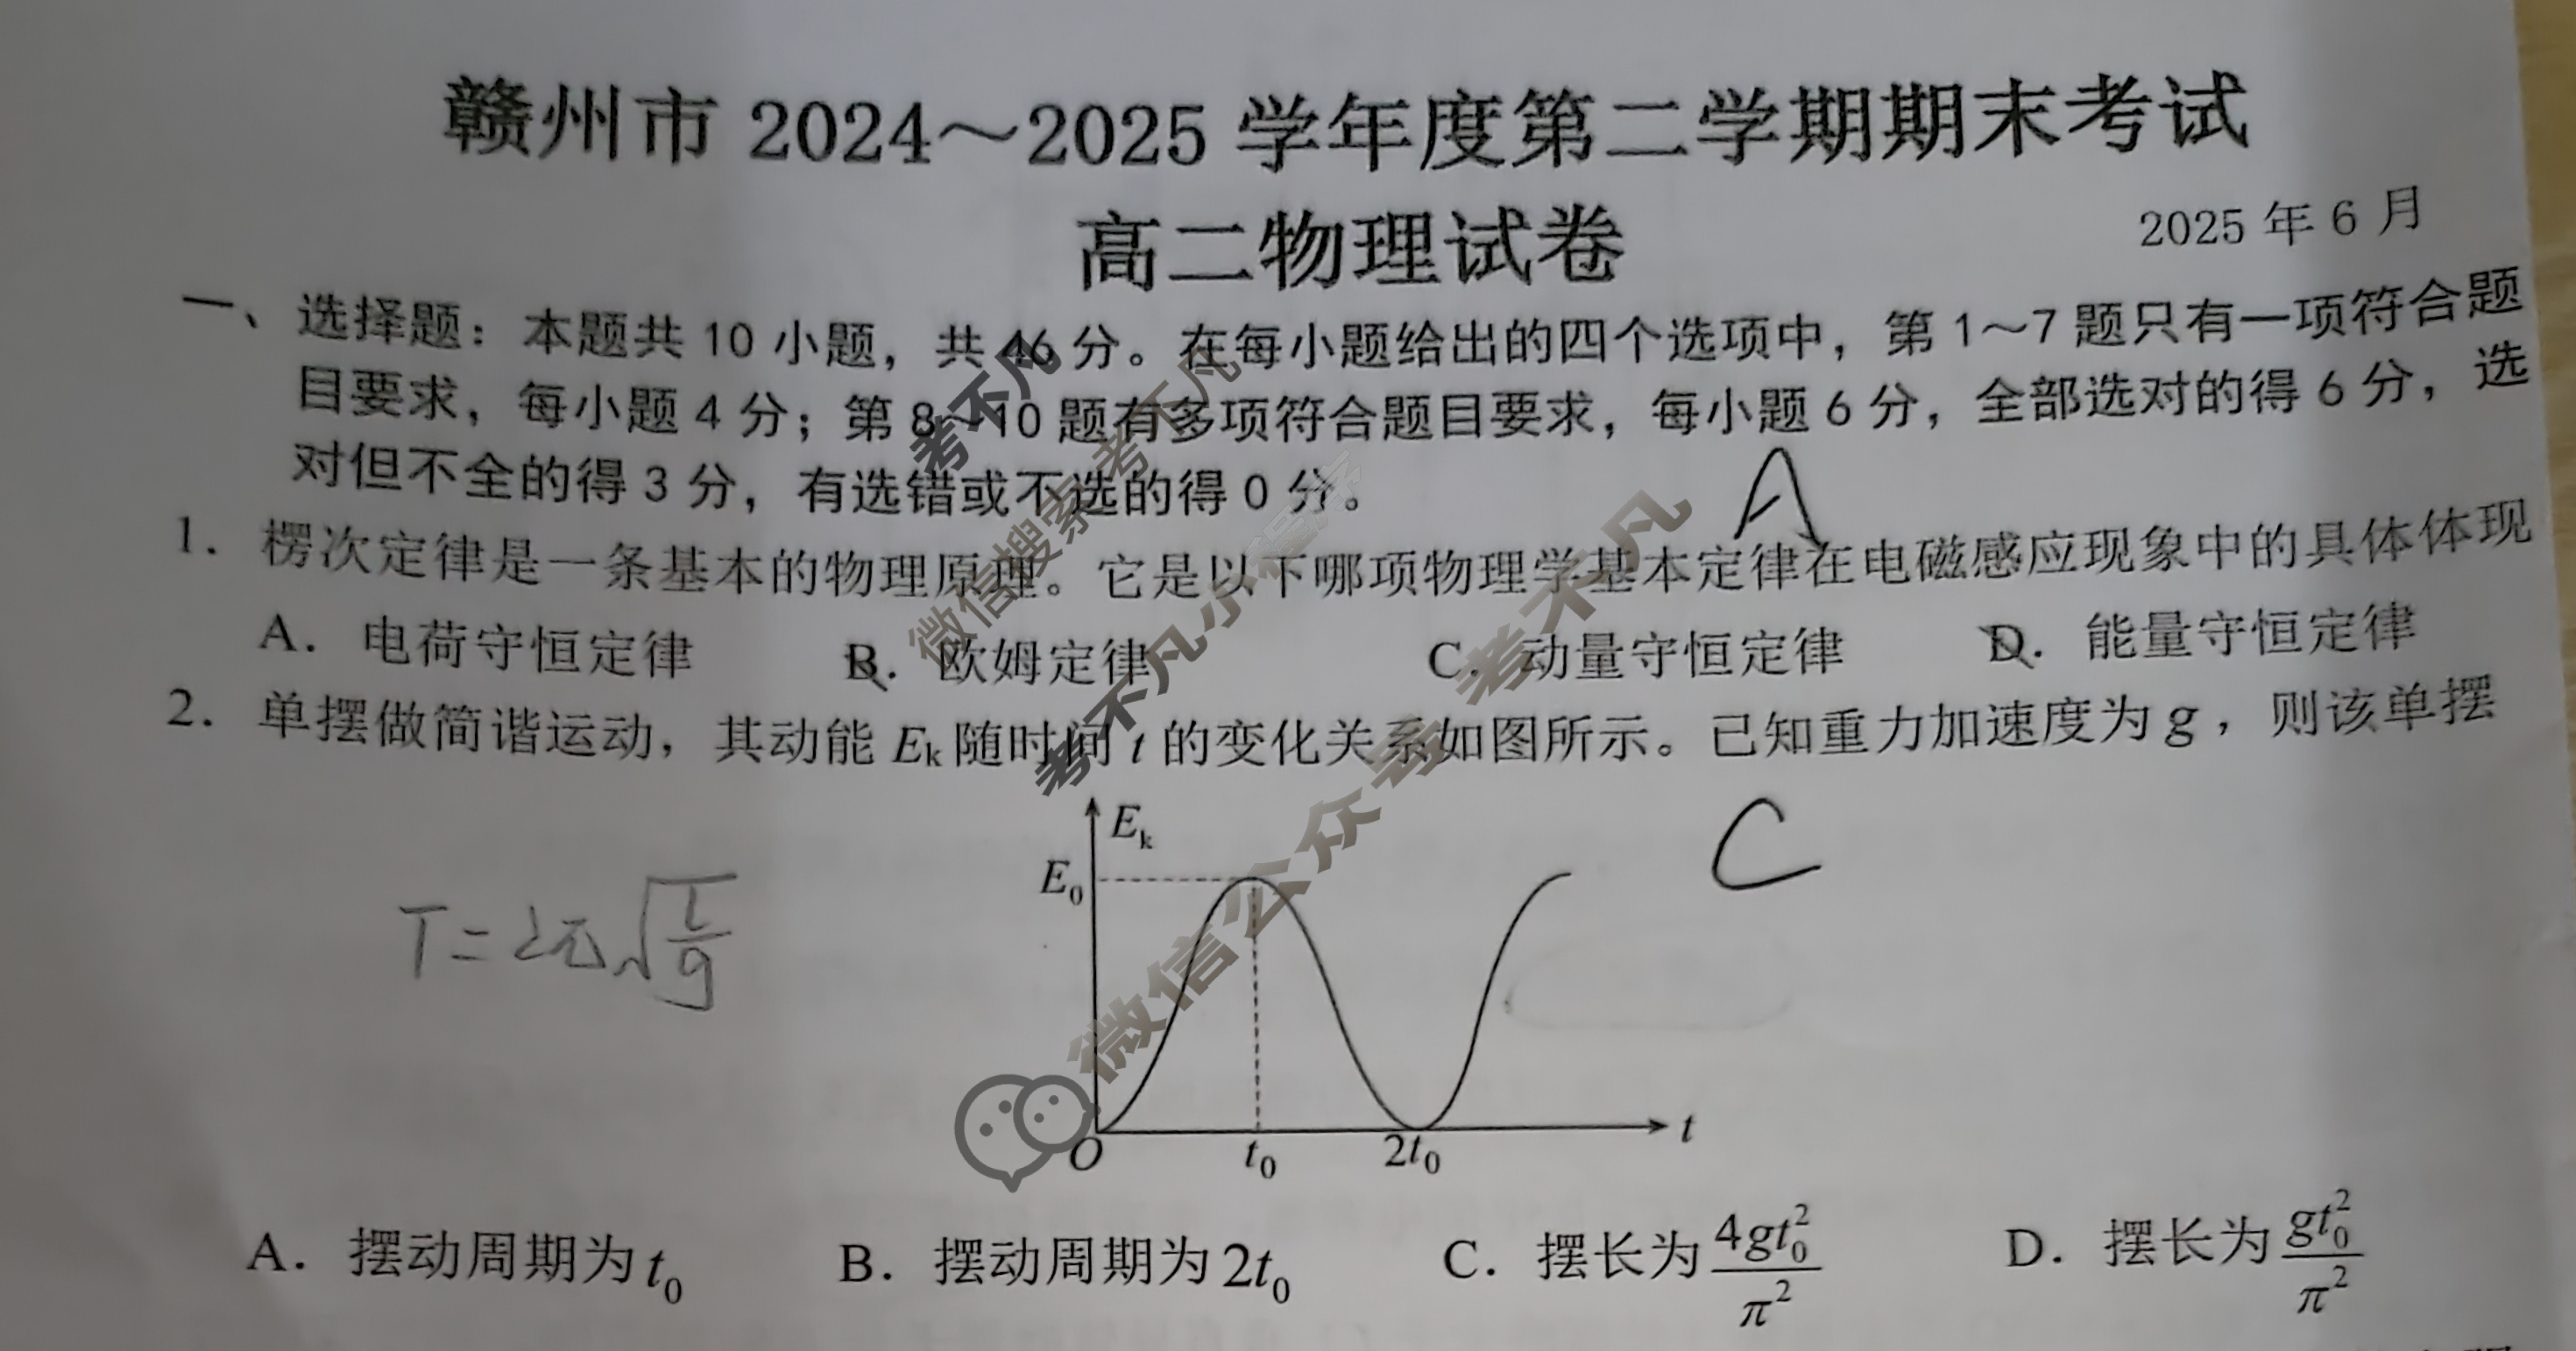 赣州市 2024～2025 学年度第二学期期末考试
高二物理试卷
2025 年 6 月
一、选择题：本题共 10 小题，共 46 分。在每小题给出的四个选项中，第 1～7 题只有一项符合题
目要求，每小题 4 分；第 8～10 题有多项符合题目要求，每小题 6 分，全部选对的得 6 分，选
对但不全的得 3 分，有选错或不选的得 0 分。
A
1．楞次定律是一条基本的物理原理。它是以下哪项物理学基本定律在电磁感应现象中的具体体现
A．电荷守恒定律 B．欧姆定律 C．动量守恒定律 D．能量守恒定律
2．单摆做简谐运动，其动能 Eₖ 随时间 t 的变化关系如图所示。已知重力加速度为 g，则该单摆
C
T=2π√(L/g)
Eₖ
E₀
O t₀ 2t₀ t
A．摆动周期为 t₀ B．摆动周期为 2t₀ C．摆长为 4gt₀²/π² D．摆长为 gt₀²/π²
考不凡
微信搜索 考不凡
考不凡小程序
微信公众号 考不凡